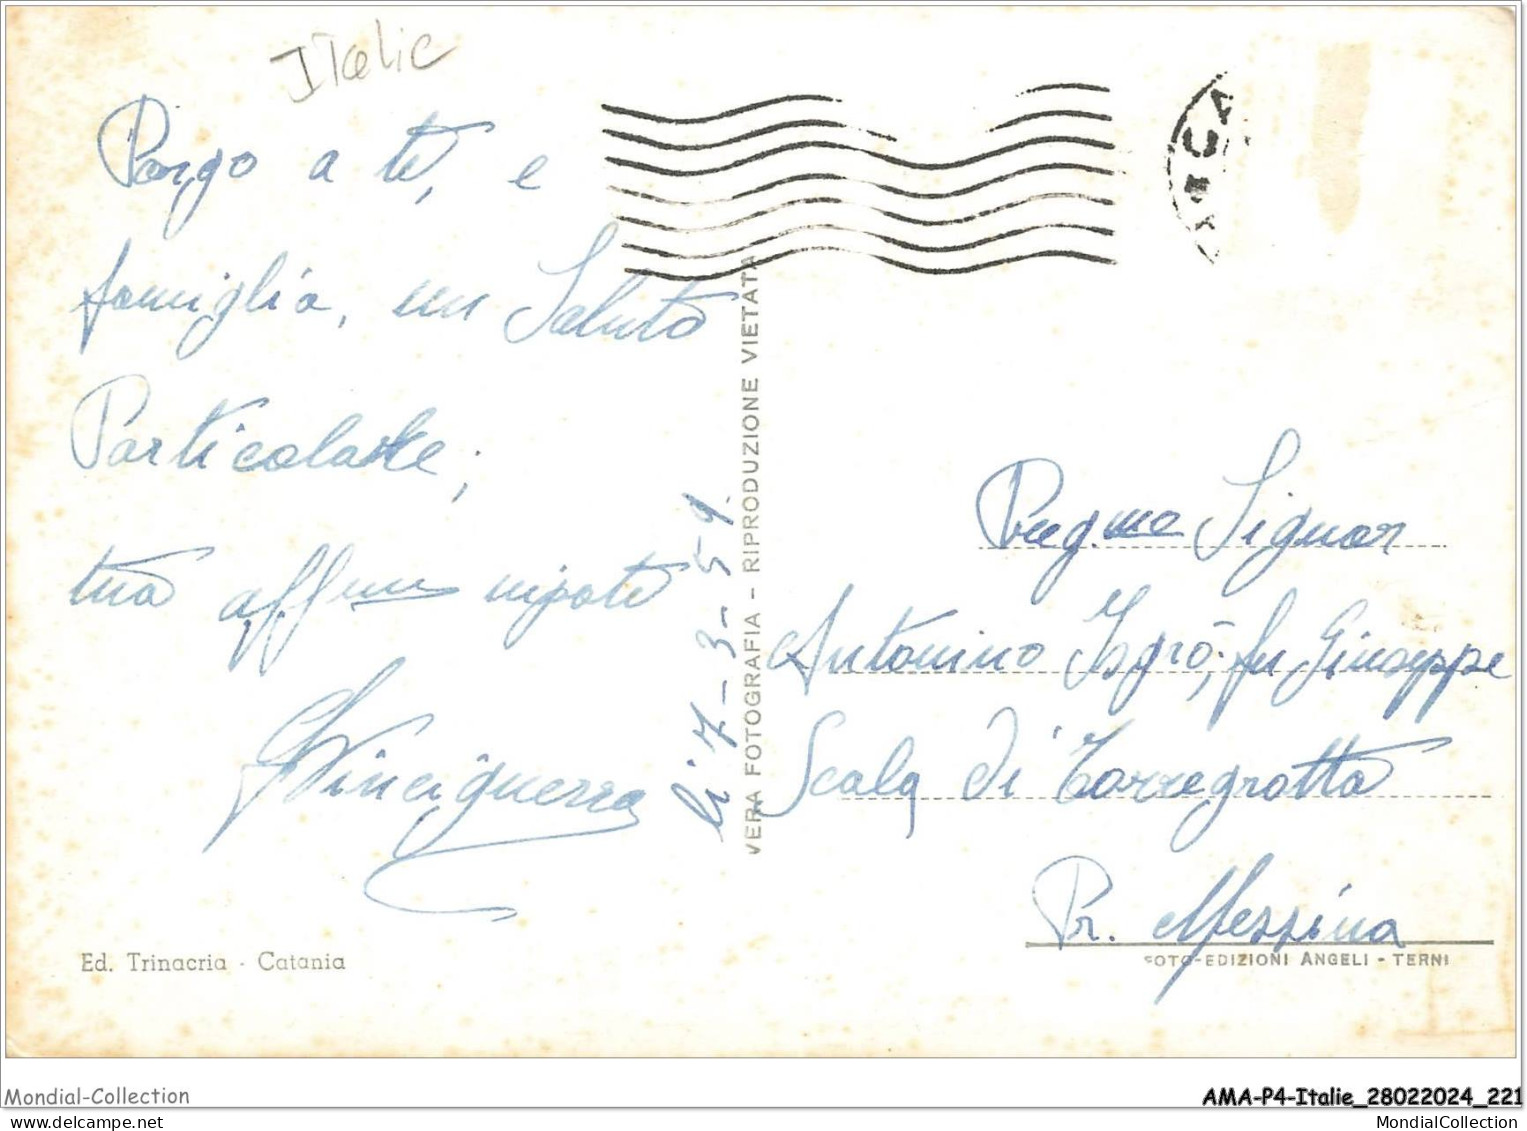 Italie
Porgo a te, e
famiglia, un Saluto
Particolare,
tuo aff.mo nipote
Vinciguerra
li 7-3-59.
Ed. Trinacria - Catania
VERA FOTOGRAFIA - RIPRODUZIONE VIETATA
Preg.mo Signor
Antonino Isgrò, fu Giuseppe
Scala di Torregrotta
Pr. Messina
FOTO-EDIZIONI ANGELI - TERNI
Mondial-Collection
AMA-P4-Italie_28022024_221
MondialCollection